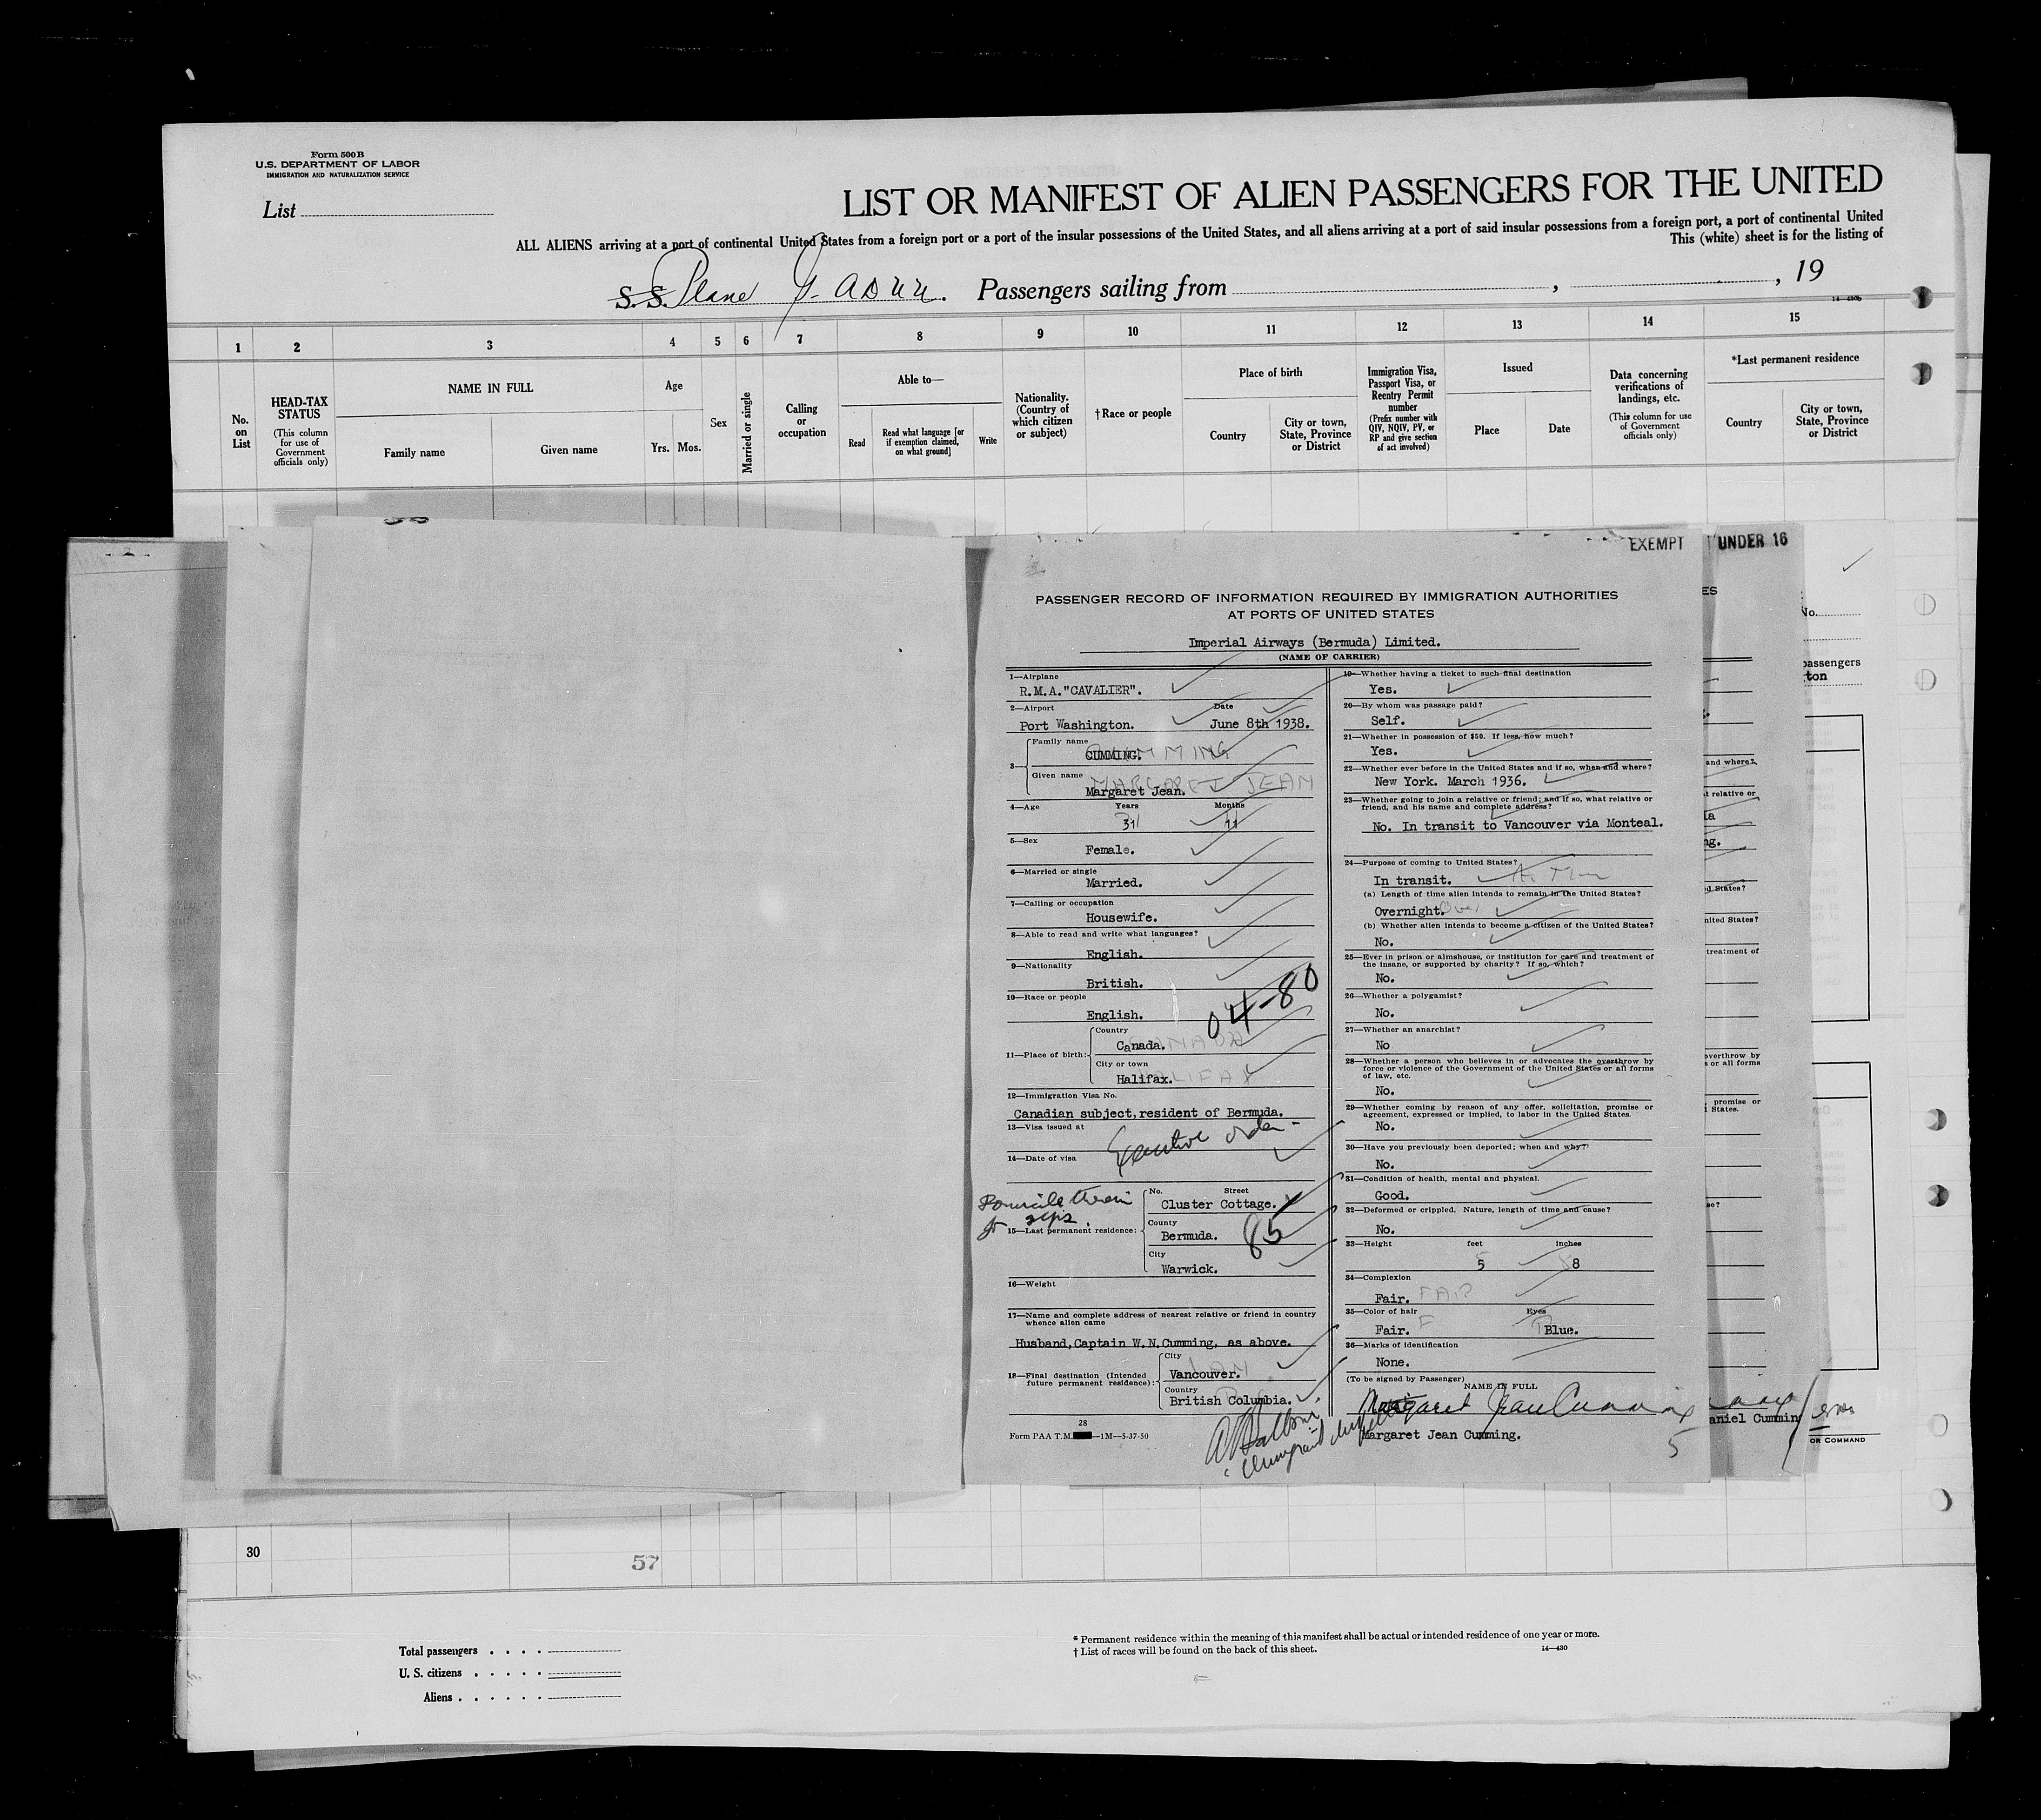 Form 500 B
U.S. DEPARTMENT OF LABOR
IMMIGRATION AND NATURALIZATION SERVICE
List
LIST OR MANIFEST OF ALIEN PASSENGERS FOR THE UNITED
ALL ALIENS arriving at a port of continental United States from a foreign port or a port of the insular possessions of the United States, and all aliens arriving at a port of said insular possessions from a foreign port, a port of continental United
This (white) sheet is for the listing of
S.S. Plane G-ADUU. Passengers sailing from , , 19
14—430b
1 2 3 4 5 6 7 8 9 10 11 12 13 14 15
No. on List
HEAD-TAX STATUS
(This column for use of Government officials only)
NAME IN FULL
Family name
Given name
Age
Yrs. Mos.
Sex
Married or single
Calling or occupation
Able to—
Read
Read what language [or if exemption claimed, on what ground]
Write
Nationality. (Country of which citizen or subject)
†Race or people
Place of birth
Country
City or town, State, Province or District
Immigration Visa, Passport Visa, or Reentry Permit number
(Prefix number with QIV, NQIV, PV, or RP and give section of act involved)
Issued
Place
Date
Data concerning verifications of landings, etc.
(This column for use of Government officials only)
*Last permanent residence
Country
City or town, State, Province or District
EXEMPT UNDER 16
PASSENGER RECORD OF INFORMATION REQUIRED BY IMMIGRATION AUTHORITIES
AT PORTS OF UNITED STATES
Imperial Airways (Bermuda) Limited.
(NAME OF CARRIER)
1—Airplane
R.M.A."CAVALIER".
2—Airport Date
Port Washington. June 8th 1938.
3—
Family name
CUMMING. CUMMING
Given name
MARGARET JEAN
Margaret Jean.
4—Age Years Months
31 11
5—Sex
Female.
6—Married or single
Married.
7—Calling or occupation
Housewife.
8—Able to read and write what languages?
English.
9—Nationality
British.
10—Race or people
English.
04-80
11—Place of birth:
Country
Canada. CANADA
City or town
Halifax. HALIFAX
12—Immigration Visa No.
Canadian subject, resident of Bermuda.
13—Visa issued at
Executive order -
14—Date of visa
Domicile therein
for
15—Last permanent residence:
No. Street
Cluster Cottage.
County
Bermuda. 85
City
Warwick.
16—Weight
17—Name and complete address of nearest relative or friend in country
whence alien came
Husband, Captain W.N.Cumming, as above.
18—Final destination (Intended future permanent residence):
City
Vancouver.
Country
British Columbia.
28
Form PAA T.M. —1M—5-37-50
19—Whether having a ticket to such final destination
Yes.
20—By whom was passage paid?
Self.
21—Whether in possession of $50. If less, how much?
Yes.
22—Whether ever before in the United States and if so, when and where?
New York. March 1936.
23—Whether going to join a relative or friend; and if so, what relative or
friend, and his name and complete address?
No. In transit to Vancouver via Monteal.
24—Purpose of coming to United States?
In transit.
(a) Length of time alien intends to remain in the United States?
Overnight. Over
(b) Whether alien intends to become a citizen of the United States?
No.
25—Ever in prison or almshouse, or institution for care and treatment of
the insane, or supported by charity? If so, which?
No.
26—Whether a polygamist?
No.
27—Whether an anarchist?
No
28—Whether a person who believes in or advocates the overthrow by
force or violence of the Government of the United States or all forms
of law, etc.
No.
29—Whether coming by reason of any offer, solicitation, promise or
agreement, expressed or implied, to labor in the United States.
No.
30—Have you previously been deported; when and why?
No.
31—Condition of health, mental and physical.
Good.
32—Deformed or crippled. Nature, length of time and cause?
No.
33—Height feet inches
5 8
34—Complexion
Fair. FAIR
35—Color of hair Eyes
Fair. F Blue.
36—Marks of identification
None.
(To be signed by Passenger)
NAME IN FULL
Margaret Jean Cumming
Margaret Jean Cumming.
5
ES
No.
passengers
ton
and where?
t relative or
ia
ng.
d States?
nited States?
treatment of
overthrow by
s or all forms
promise or
d States.
se?
aniel Cummin
OR COMMAND
30
57
Total passengers
U. S. citizens
Aliens
* Permanent residence within the meaning of this manifest shall be actual or intended residence of one year or more.
† List of races will be found on the back of this sheet.
14—430